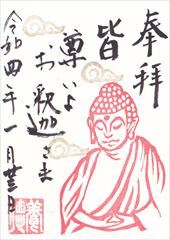 奉拝
皆
尊いよ
お釈迦さま
令和四年一月廿三日